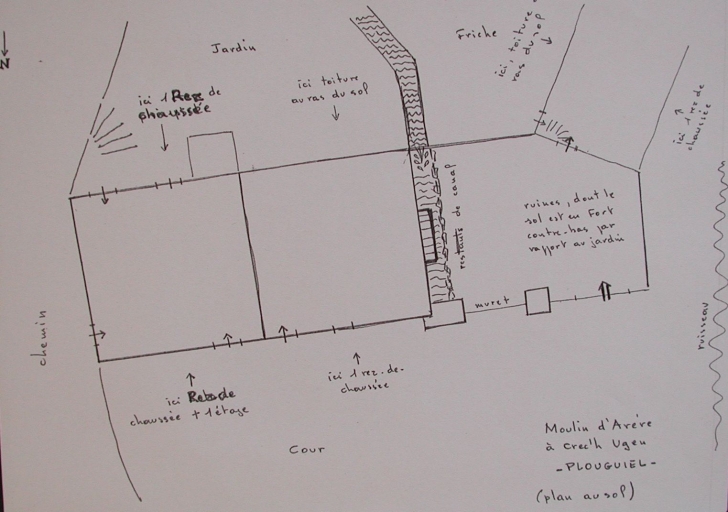 N
Jardin
Friche
ici, toiture
ras du sol
ici 1 Rez de
chaussée
ici toiture
au ras du sol
ici 1 rez de
chaussée
restants de canal
ruines, dont le
sol est en Fort
contre-bas par
rapport au jardin
chemin
muret
ruisseau
ici Rez de
chaussée + 1 étage
ici 1 rez-de-
chaussée
Cour
Moulin d'Arére
à Crec'h Ugen
- PLOUGUIEL -
(plan au sol)